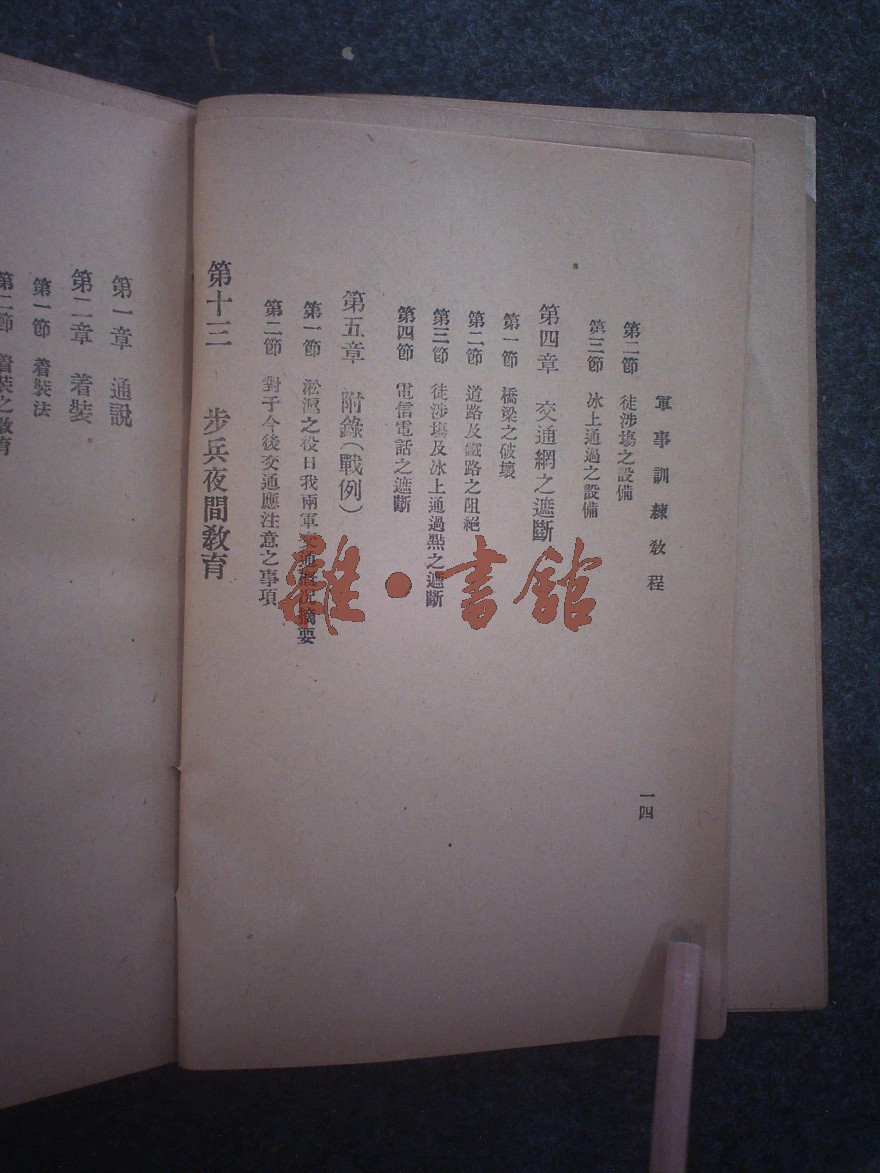 軍事訓練教程
第二節 徒涉場之設備
第三節 冰上通過之設備
第四章 交通網之遮斷
第一節 橋梁之破壞
第二節 道路及鐵路之阻絕
第三節 徒涉場及冰上通過點之遮斷
第四節 電信電話之遮斷
第五章 附錄(戰例)
第一節 淞滬之役日我兩軍交通概況摘要
第二節 對于今後交通應注意之事項
第十三 步兵夜間教育
一四
第一章 通說
第二章 着裝
第一節 着裝法
第二節 着裝之教育
雜·書館